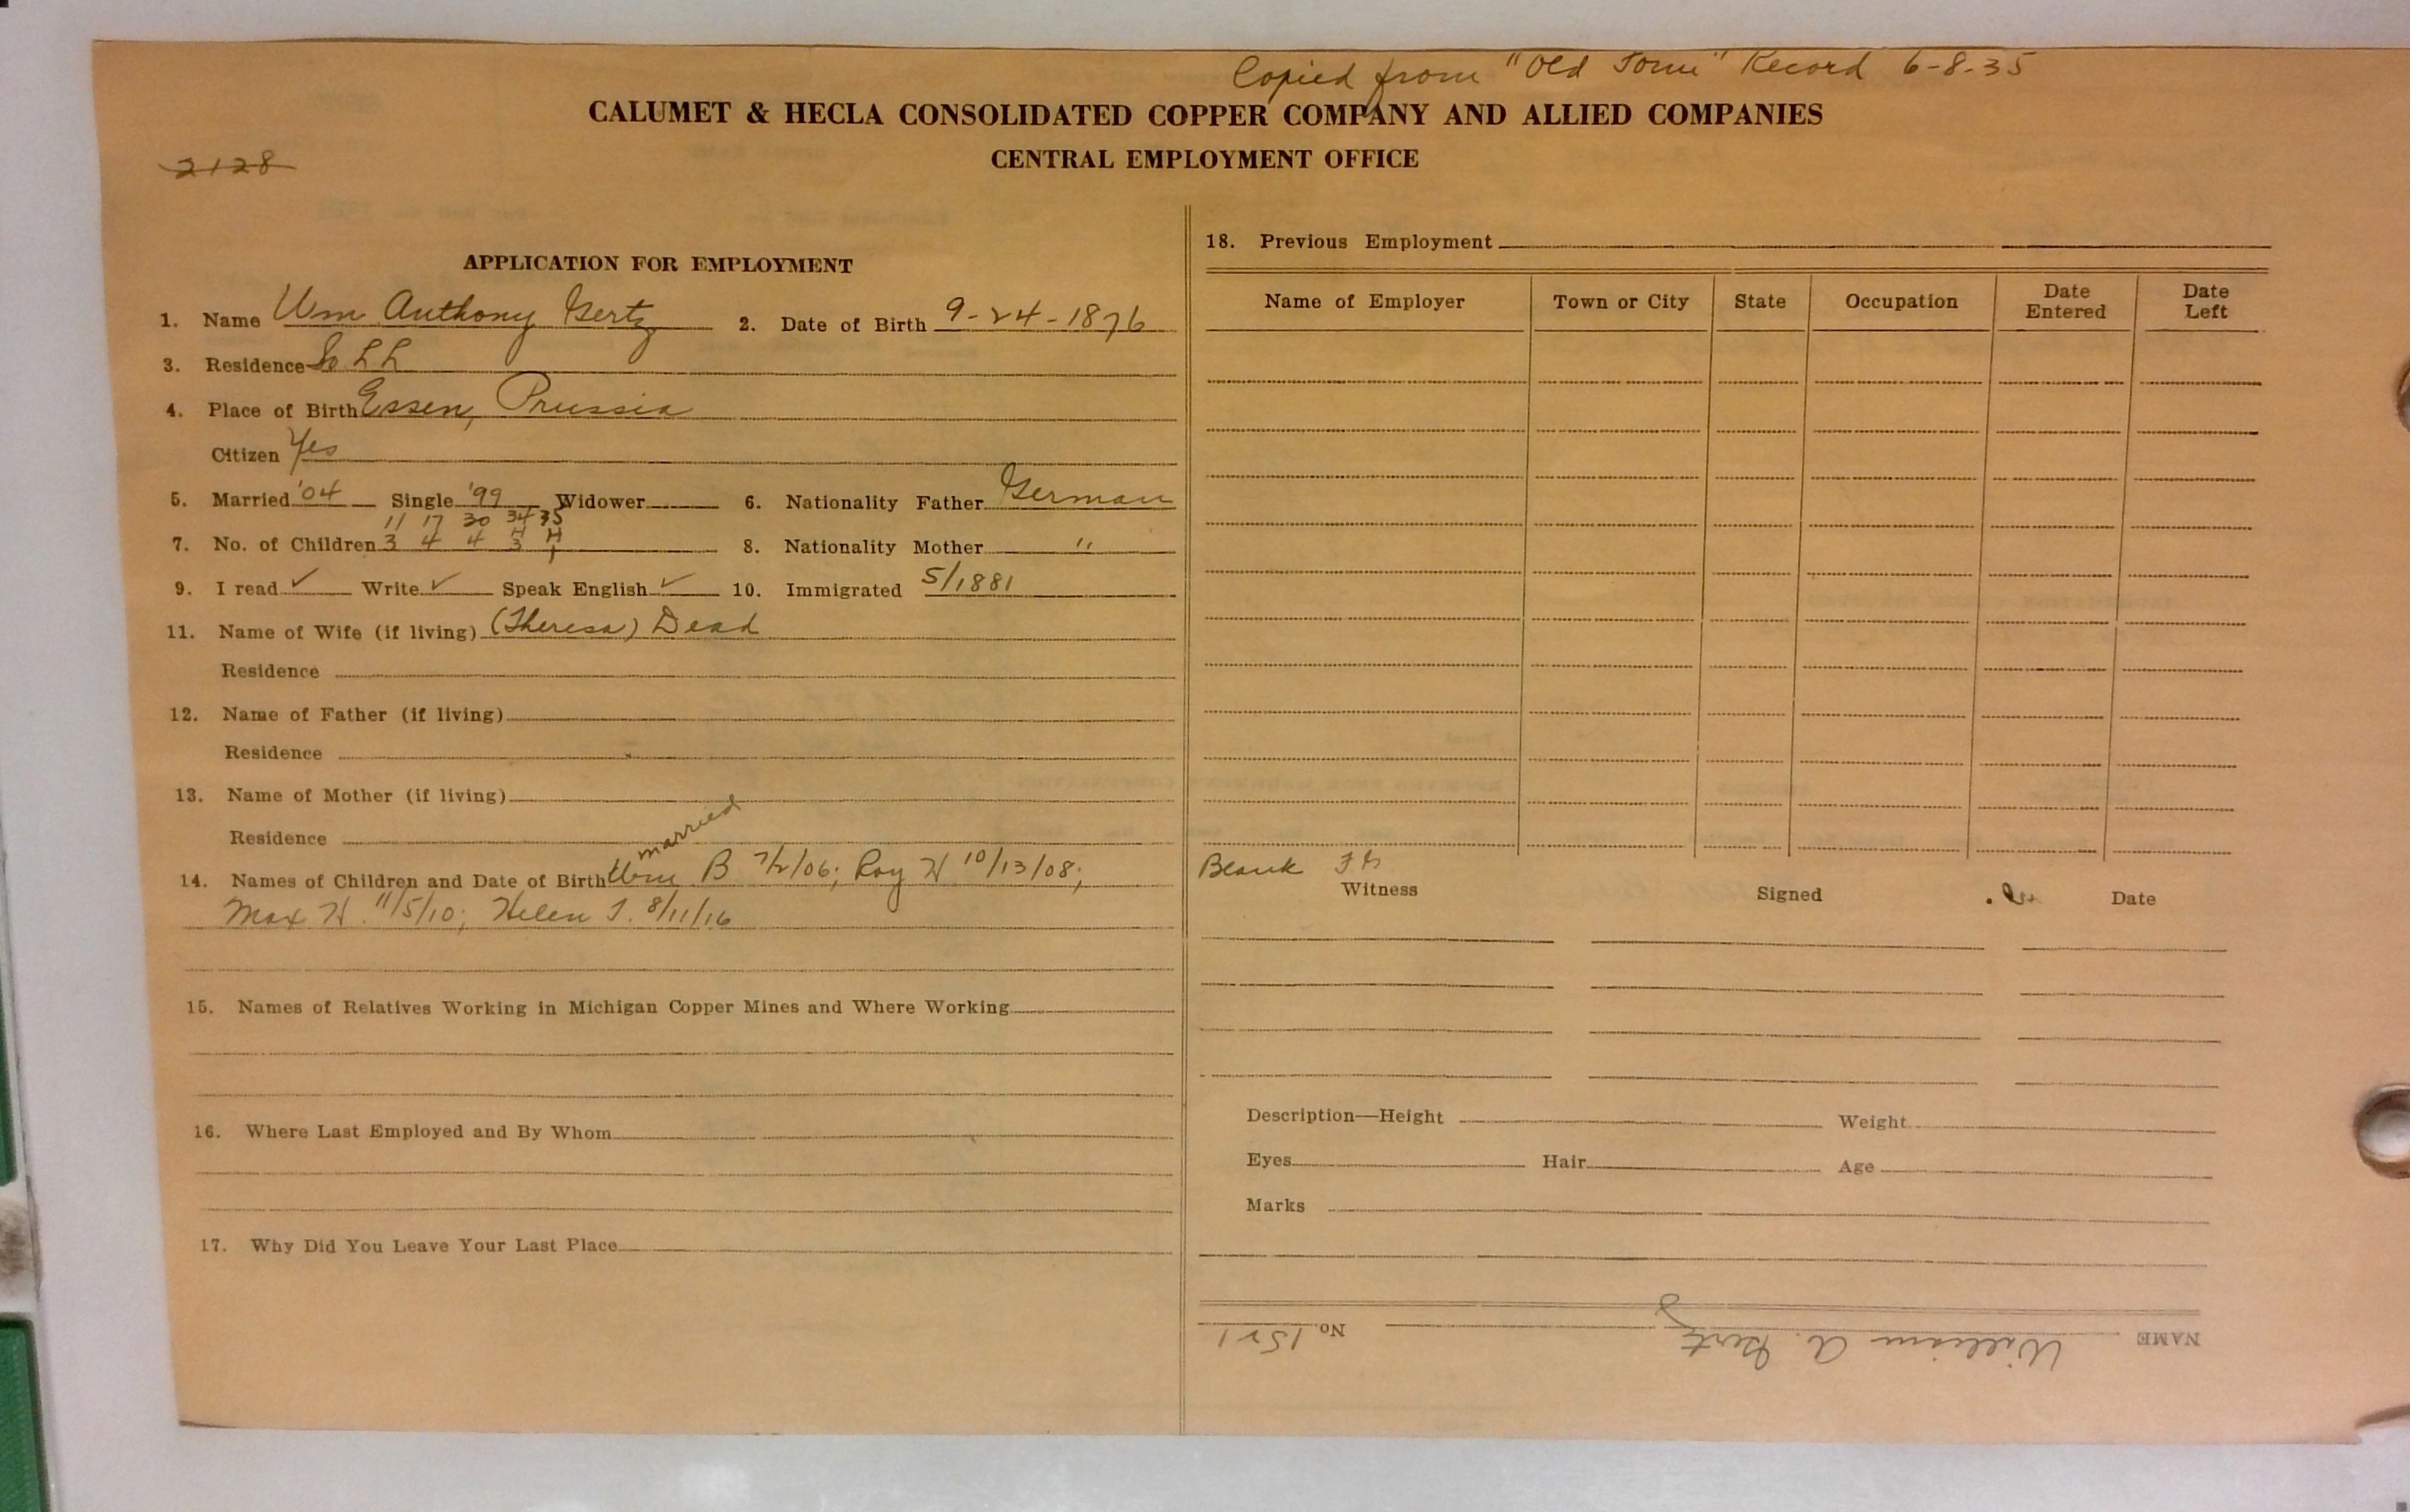 Copied from "Old Form" Record 6-8-35
CALUMET & HECLA CONSOLIDATED COPPER COMPANY AND ALLIED COMPANIES
CENTRAL EMPLOYMENT OFFICE
2128
APPLICATION FOR EMPLOYMENT
1. Name Wm Anthony Gertz 2. Date of Birth 9-24-1876
3. Residence So LL
4. Place of Birth Essen, Prussia
Citizen Yes
5. Married '04 Single '99 Widower 6. Nationality Father German
11 17 30 34 35
7. No. of Children 3 4 4 3 1 8. Nationality Mother "
9. I read ✓ Write ✓ Speak English ✓ 10. Immigrated 5/1881
11. Name of Wife (if living) (Theresa) Dead
Residence
12. Name of Father (if living)
Residence
13. Name of Mother (if living)
Residence
married
14. Names of Children and Date of Birth Wm B 7/2/06; Roy H 10/13/08;
Max H. 11/5/10; Helen T. 8/11/16
15. Names of Relatives Working in Michigan Copper Mines and Where Working
16. Where Last Employed and By Whom
17. Why Did You Leave Your Last Place
18. Previous Employment
Name of Employer Town or City State Occupation Date Entered Date Left
Blank
Witness Signed Date
Description—Height Weight
Eyes Hair Age
Marks
NAME William A. Gertz No. 1521